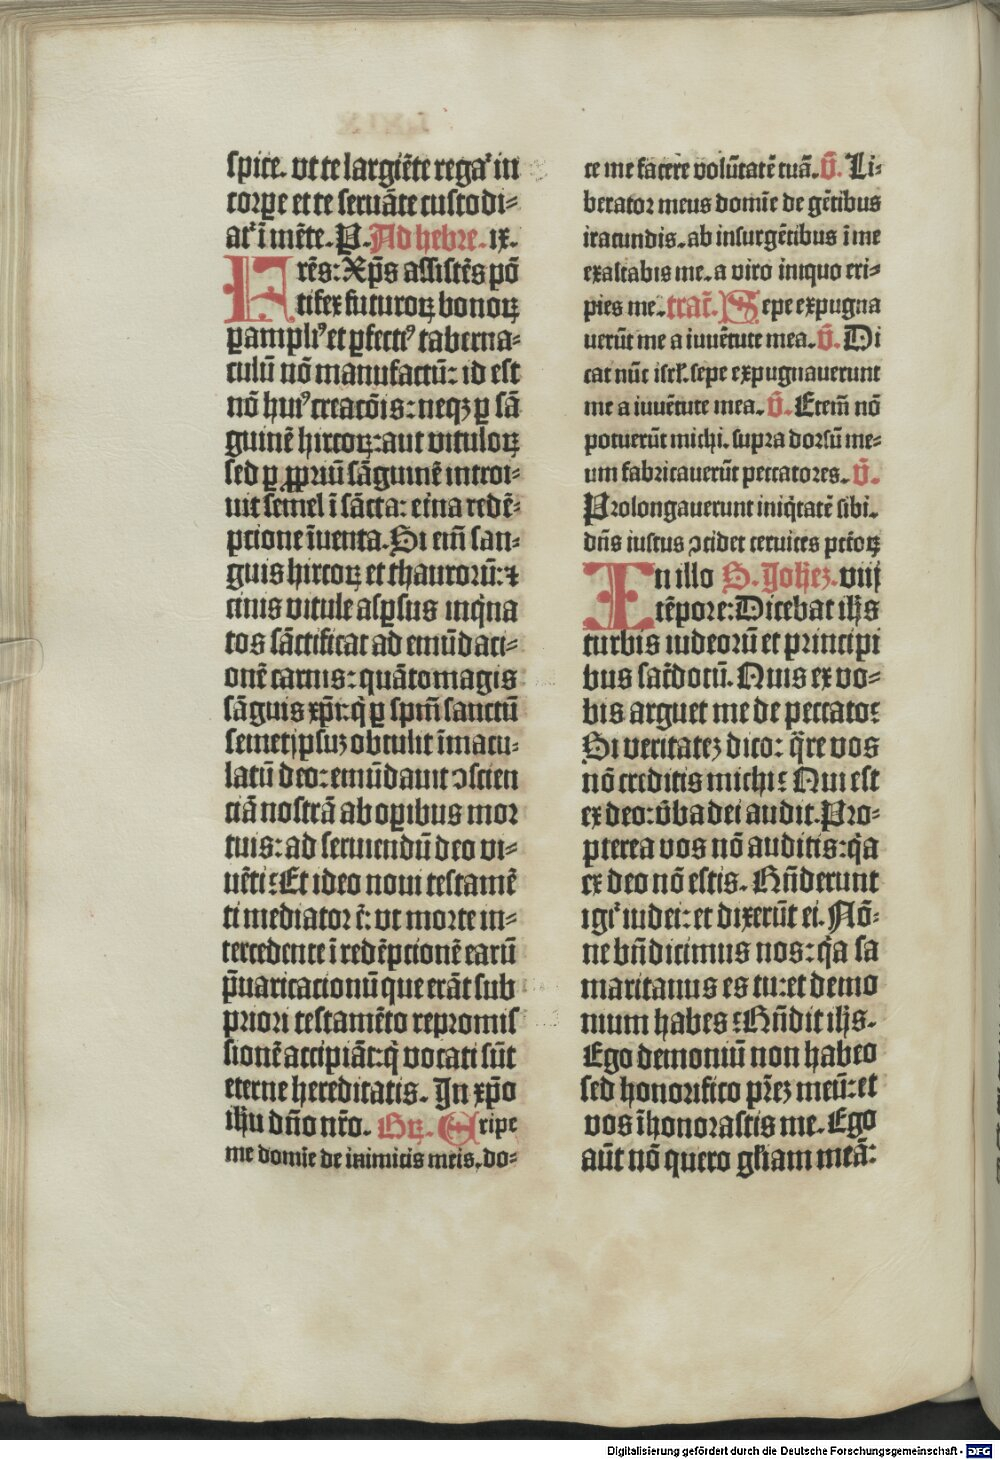 spice. vt te largiēte regaᷣ in
corꝑe et te seruāte custodi-
atᷣ ī mēte. P. Ad hebre. ix.
FRēs: Xp̄s assistēs pō
tifex futuroꝝ bonoꝝ
ꝑ ampliꝰ et ꝑfectiꝰ taberna-
culū nō manufactū: id est
nō huiꝰ creacōis: neqꝫ ꝑ sā
guinē hircoꝝ: aut vituloꝝ
sed ꝑ ꝓpriū sāguinē introi-
uit semel ī sācta: etīna redē-
ptione īuenta. Si em̄ san-
guis hircoꝝ et thauroꝝū: ⁊
cinis vitule asꝑsus inq̇na
tos sāctificat ad emūdaci-
onē carnis: quāto magis
sāguis xp̄i: q̇ ꝑ sp̄m sanctū
semetip̄suꝫ obtulit īmacu-
latū deo: emūdauit ꝯscien
ciā nostrā ab oꝑibus mor
tuis: ad seruiendū deo vi-
uēti? Et ideo noui testamē
ti mediator ē: vt morte in-
tercedente ī redēptionē earū
p̄uaricacionū que erāt sub
priori testamēto repromis
sionē accipiāt: q̇ vocati sūt
eterne hereditatis. In xp̄o
ihū dn̄o nr̄o. Gꝝ. Eripe
me domīe de inimicis meis. do-
ce me facere volūtatē tuā. V̄. Li-
berator meus domīe de gētibus
iracundis. ab insurgētibus ī me
exaltabis me. a viro iniquo eri-
pies me. tract̄. Sepe expugna
uerūt me a iuuētute mea. V̄. Di
cat nūc isrl̄. sepe expugnauerunt
me a iuuētute mea. V̄. Etem̄ nō
potuerūt michi. supra dorsū me-
um fabricauerūt peccatores. V̄.
Prolongauerunt iniq̇tatē sibi.
dn̄s iustus ꝯcidet ceruices pctōꝝ
In illo S. Joheꝫ. viij
tēpore: Dicebat ihs̄
turbis iudeorū et principi
bus sac̄dotū. Quis ex vo-
bis arguet me de peccato?
Si veritateꝫ dico: q̄re vos
nō creditis michi? Qui est
ex deo: v̄ba dei audit. Pro-
pterea vos nō auditis: q̇a
ex deo nō estis. Rn̄derunt
igiᷣ iudei: et dixerūt ei. Nō-
ne bn̄dicimus nos: q̇a sa
maritanus es tu: et demo
nium habes? Rn̄dit ihs̄.
Ego demoniū non habeo
sed honorifico pr̄eꝫ meū: et
vos īhonorastis me. Ego
aūt nō quero gl̄iam meā:
Digitalisierung gefördert durch die Deutsche Forschungsgemeinschaft - DFG